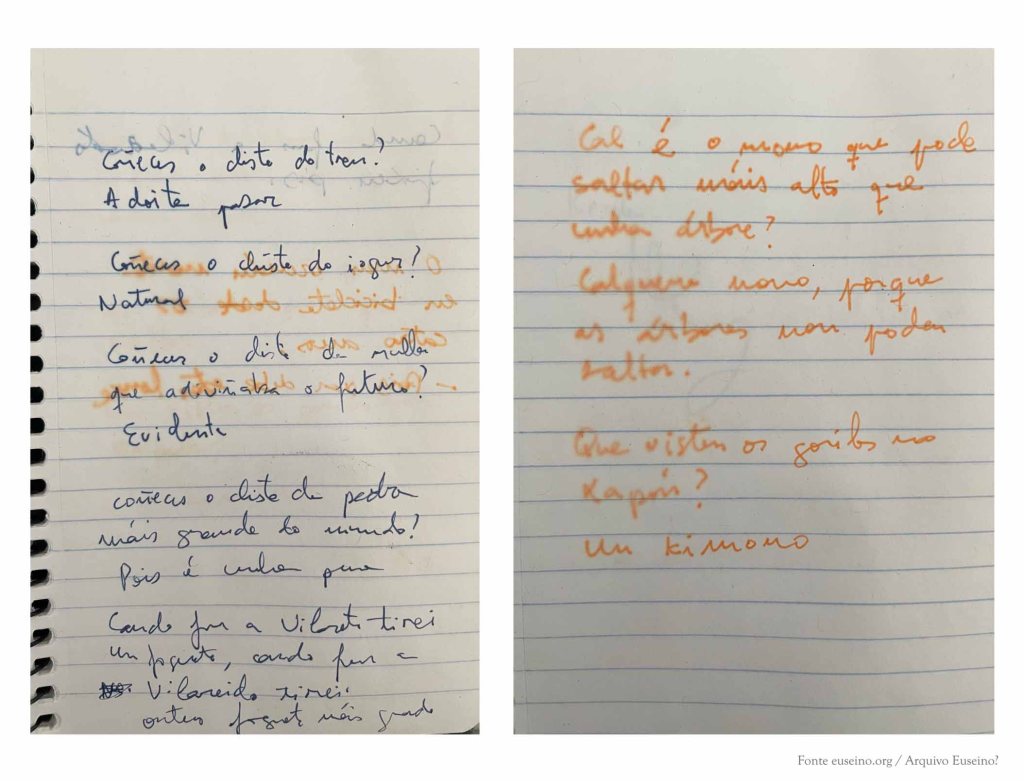 Coñeces o chiste do tren?
Adoita pasar
Coñeces o chiste do iogur?
Natural
Coñeces o chiste da muller
que adiviñaba o futuro?
Evidente
coñeces o chiste da pedra
máis grande do mundo?
Pois é unha pena
Cando fun a Vilarete tirei
un foguete, cando fun a
Vilareido tirei
outro foguete máis grande
Cal é o mono que pode
saltar máis alto que
unha árbore?
Calquera mono, porque
as árbores non poden
saltar.
Que visten os gorilas no
Xapón?
Un kimono
Fonte euseino.org / Arquivo Euseino?